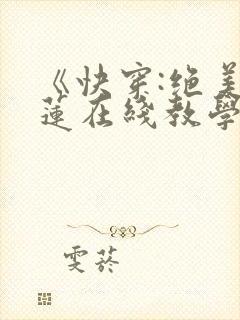 《快穿:绝美
莲在线教学
雯菸